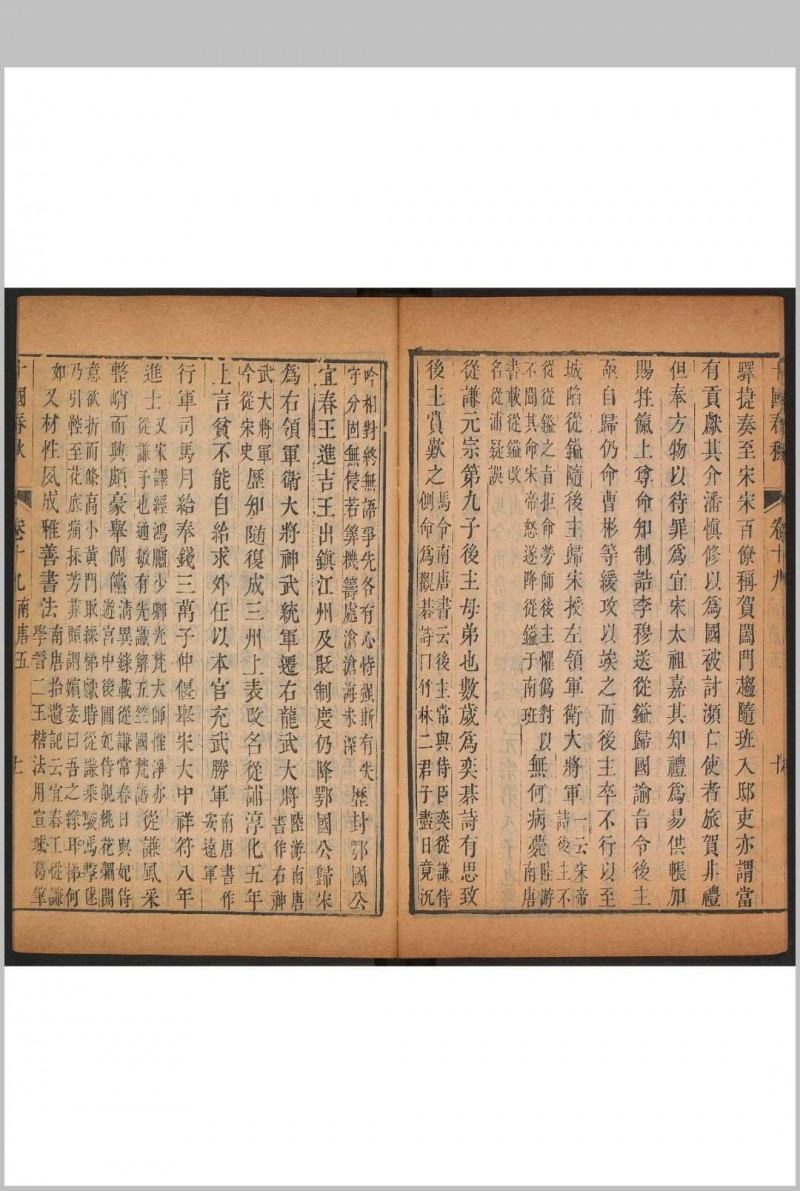 驛捷奏至宋宋百僚稱賀閤門趨隨班入邸吏亦謂當
有貢獻其介潘慎修以為國被討瀕亡使者旅賀非禮
但奉方物以待罪為宜宋太祖嘉其知禮為易供帳加
賜牲餼上尊命知制誥李穆送從鎰歸國諭旨令後主
亟自歸仍命曹彬等緩攻以竢之而後主卒不行以至
城陷從鎰隨後主歸宋授左領軍衛大將軍一云宋帝
詩後主不
從從鎰之言拒命勞師後主懼為對以
不聞其命宋帝怒遂降從鎰于南班無何病薨陸游
南唐
書載從鎰改
名從浦疑誤
從謙元宗第九子後主母弟也數歲為奕碁詩有思致
後主賞歎之馬令南唐書云後主常與侍臣奕從謙侍
側命為觀碁詩口竹林二君子盡日竟沉
吟相對終無語爭先各有心恃强斯有失
守分固無侵若算機籌處滄滄海未深歷封鄂國公
宜春王進吉王出鎮江州及貶制度仍降鄂國公歸宋
為右領軍衛大將神武統軍遷右龍武大將陸游南唐
書作右神
武大將軍
今從宋史歷知隨復成三州上表改名從誧淳化五年
上言貧不能自給求外任以本官充武勝軍南唐書作
安遠軍
行軍司馬月給奉錢三萬子仲偃舉宋大中祥符八年
進士又宋譯經鴻臚少卿光梵大師惟淨亦
從謙子也通敏有先識解五竺國梵語從謙風采
整峭而興頗豪舉倜儻清異錄載從謙常春日與妃侍
遊宮中後圃妃侍覩桃花爛開
意欲折而條高小黃門取綵梯獻時從謙乘駿馬擊毬
乃引鞚至花底痛採芳菲顧謂嬪妾曰吾之綠耳梯何
如又材性夙成雅善書法南唐拾遺記云宜春王從謙
學晉二王楷法用宣城葛筆
十國春秋
卷十九 南唐五
十一